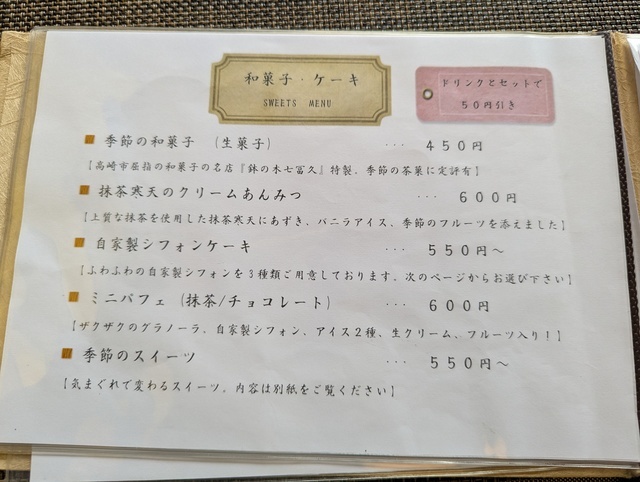 和菓子・ケーキ
SWEETS MENU
ドリンクとセットで
50円引き
季節の和菓子 (生菓子) ・・・ 450円
【高崎市屈指の和菓子の名店『鉢の木七冨久』特製。季節の茶菓に定評有】
抹茶寒天のクリームあんみつ ・・・ 600円
【上質な抹茶を使用した抹茶寒天にあずき、バニラアイス、季節のフルーツを添えました】
自家製シフォンケーキ ・・・ 550円～
【ふわふわの自家製シフォンを3種類ご用意しております。次のページからお選び下さい】
ミニパフェ (抹茶/チョコレート) ・・・ 600円
【ザクザクのグラノーラ。自家製シフォン、アイス2種、生クリーム、フルーツ入り！】
季節のスイーツ ・・・ 550円～
【気まぐれで変わるスイーツ。内容は別紙をご覧ください】